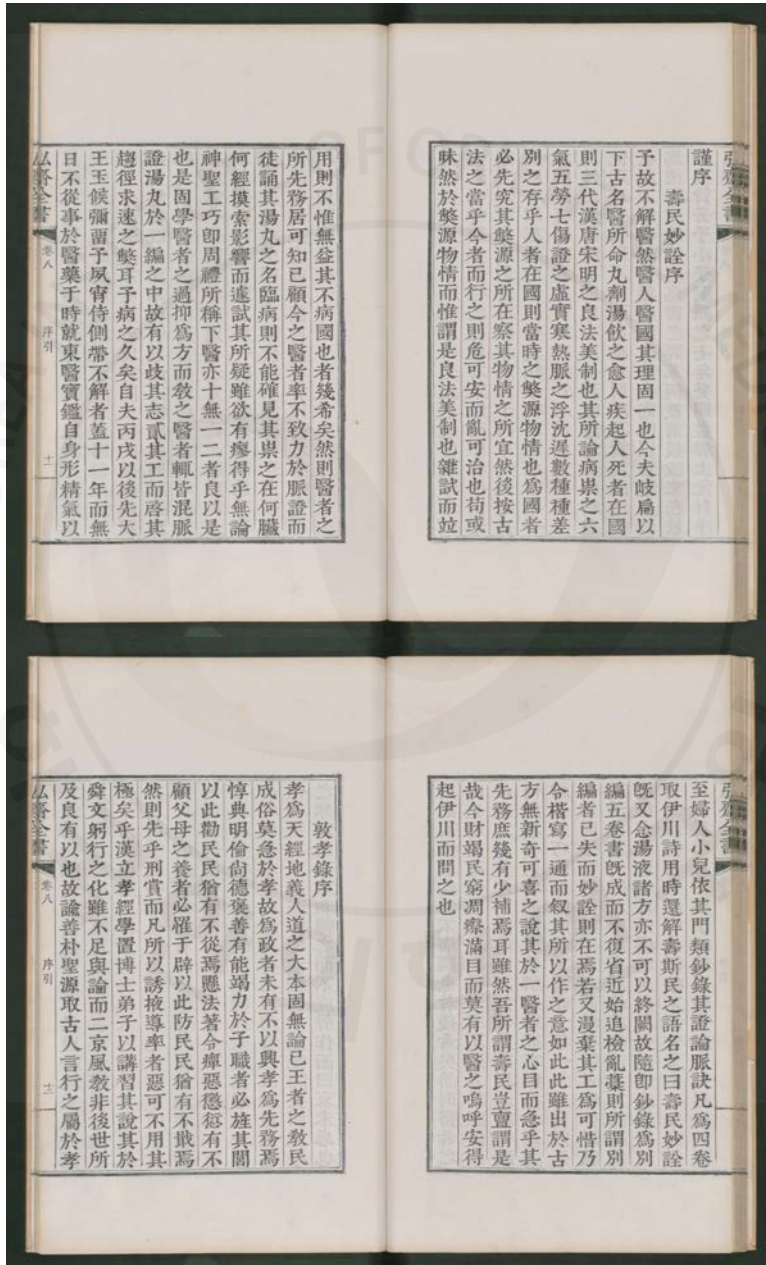 弘齋全書
謹序
壽民妙詮序
予故不解醫然醫人醫國其理固一也今夫岐扁以
下古名醫所命丸劑湯飲之愈人疾起人死者在國
則三代漢唐宋明之良法美制也其所論病祟之六
氣五勞七傷證之虛實寒熱脈之浮沈遲數種種差
別之存乎人者在國則當時之獘源物情也爲國者
必先究其獘源之所在察其物情之所宜然後按古
法之當乎今者而行之則危可安而亂可治也苟或
昧然於獘源物情而惟謂是良法美制也雜試而竝
用則不惟無益其不病國也者幾希矣然則醫者之
所先務居可知已顧今之醫者率不致力於脈證而
徒誦其湯丸之名臨病則不能確見其祟之在何臟
何經摸索影響而遽試其所疑雖欲有瘳得乎無論
神聖工巧卽周禮所稱下醫亦十無一二者良以是
也是固學醫者之過抑爲方而敎之醫者輒皆混脈
證湯丸於一編之中故有以歧其志貳其工而啓其
趨徑求速之獘耳予病之久矣自夫丙戌以後先大
王玉候彌留予夙宵侍側帶不解者蓋十一年而無
日不從事於醫藥于時就東醫寶鑑自身形精氣以
弘齋全書
卷八
序引
十二
弘齋全書
至婦人小兒依其門類鈔錄其證論脈訣凡爲四卷
取伊川詩用時還解壽斯民之語名之曰壽民妙詮
旣又念湯液諸方亦不可以終闕故隨卽鈔錄爲別
編五卷書旣成而不復省近始追檢亂藁則所謂別
編者已失而妙詮則在焉若又漫棄其工爲可惜乃
令楷寫一通而叙其所以作之意如此此雖出於古
方無新奇可喜之說其於一醫者之心目而急乎其
先務庶幾有少補焉耳雖然吾所謂壽民豈亶謂是
哉今財竭民窮凋瘵滿目而莫有以醫之嗚呼安得
起伊川而問之也
敦孝錄序
孝爲天經地義人道之大本固無論已王者之敎民
成俗莫急於孝故爲政者未有不以興孝爲先務焉
惇典明倫尙德褒善有能竭力於子職者必旌其閭
以此勸民民猶有不從焉懸法著令癉惡懲愆有不
顧父母之養者必罹于辟以此防民民猶有不戢焉
然則先乎刑賞而凡所以誘掖導率者惡可不用其
極矣乎漢立孝經學置博士弟子以講習其說其於
舜文躬行之化雖不足與論而二京風敎非後世所
及良有以也故論善朴聖源取古人言行之屬於孝
弘齋全書
卷八
序引
十三